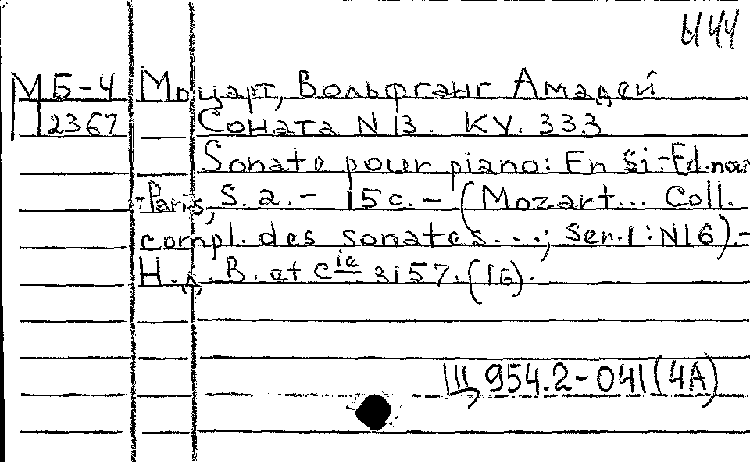 444
М Б-4 Моцарт, Вольфганг Амадей
2367 Соната N 13. KV. 333
Sonate pour piano: En si.-Ed. nat
-Paris, S. a. - 15 c. - (Mozart... Coll.
compl. des sonates...; Ser. 1: N16).-
H. L. B. et cie 3157. (16).
Щ 954.2-041(4А)